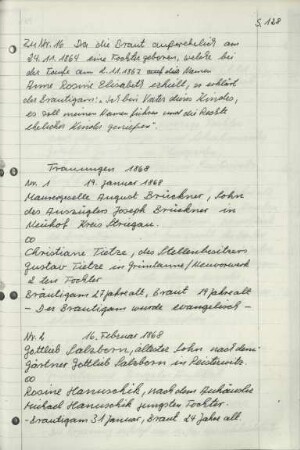 S. 128
Zu Nr. 16 Da die Braut außerehelich am
24.11.1864 eine Tochter geboren, welche bei
der Taufe am 2.11.1862 auf die Namen
Anna Rosine Elisabeth erhielt, so erklärt
der Bräutigam: "Ich bin Vater dieses Kindes,
es soll meinen Namen führen und die Rechte
ehelichen Kindes genießen".
Trauungen 1868
Nr. 1 19. Januar 1868
Maurergeselle August Brückner, Sohn
des Auszüglers Joseph Brückner in
Neuhof Kreis Striegau.
∞
Christiane Tietze, des Stellenbesitzers
Gustav Tietze in Grüntanne/Neuvorwerk
2 ten Tochter
Bräutigam 27 Jahre alt, Braut 19 Jahre alt
- Der Bräutigam wurde evangelisch -
Nr. 2 16. Februar 1868
Gottlieb Salzborn, ältester Sohn nach dem
gärtner Gottlieb Salzborn in
∞
Rosine Hanuschik, nach dem Aushäusler
Michael Hanuschik jüngsten Tochter.
- Bräutigam 31 Januar, Braut 24 Jahre alt.